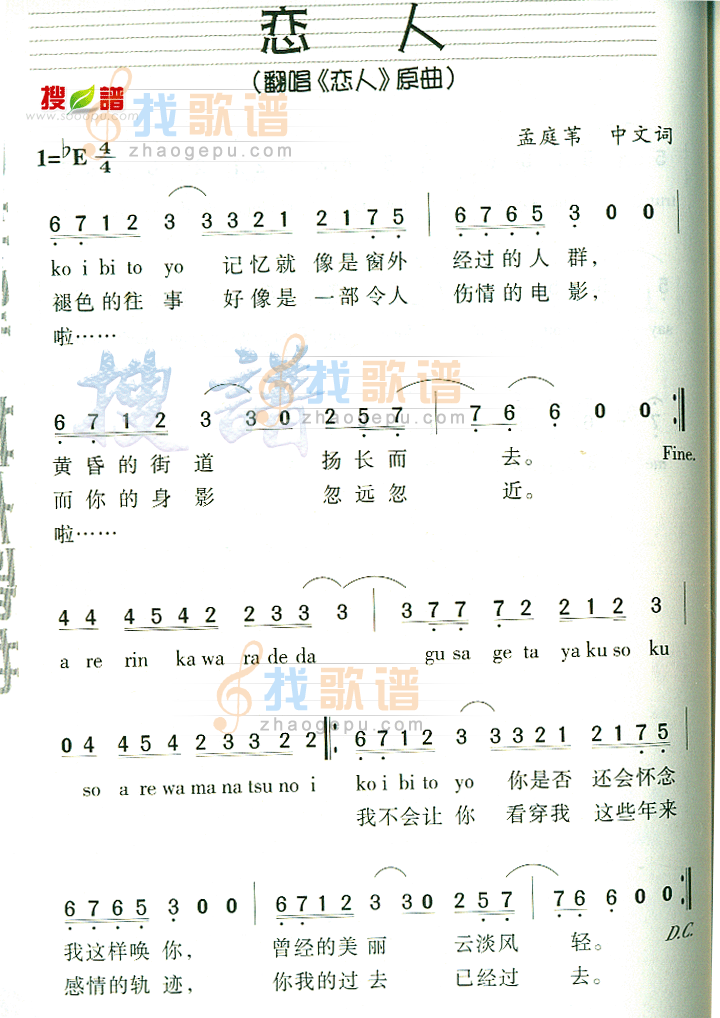 恋 人
(翻唱《恋人》原曲)
搜谱
www.sooopu.com
找歌谱
zhaogepu.com
孟庭苇 中文词
1=♭E 4/4
6 7 1 2 3 3 3 2 1 2 1 7 5 | 6 7 6 5 3 0 0 |
ko i bi to yo 记忆就 像是窗外 经过的人 群,
褪色的往 事 好像是 一部令人 伤情的电 影,
啦……
搜譜
找歌谱
zhaogepu.com
6 7 1 2 3 3 0 2 5 7 | 7 6 6 0 0 :||
黄昏的街 道 扬长而 去。 Fine.
而你的身 影 忽远忽 近。
啦……
4 4 4 5 4 2 2 3 3 3 | 3 7 7 7 2 2 1 2 3 |
a re rin ka wa ra de da gu sa ge ta ya ku so ku
找歌谱
zhaogepu.com
0 4 4 5 4 2 3 3 2 2 ||: 6 7 1 2 3 3 3 2 1 2 1 7 5 |
so a re wa ma na tsu no i ko i bi to yo 你是否 还会怀念
我不会让 你 看穿我 这些年来
6 7 6 5 3 0 0 | 6 7 1 2 3 3 0 2 5 7 | 7 6 6 0 0 :||
我这样唤 你, 曾经的美 丽 云淡风 轻。 D.C.
感情的轨 迹, 你我的过 去 已经过 去。